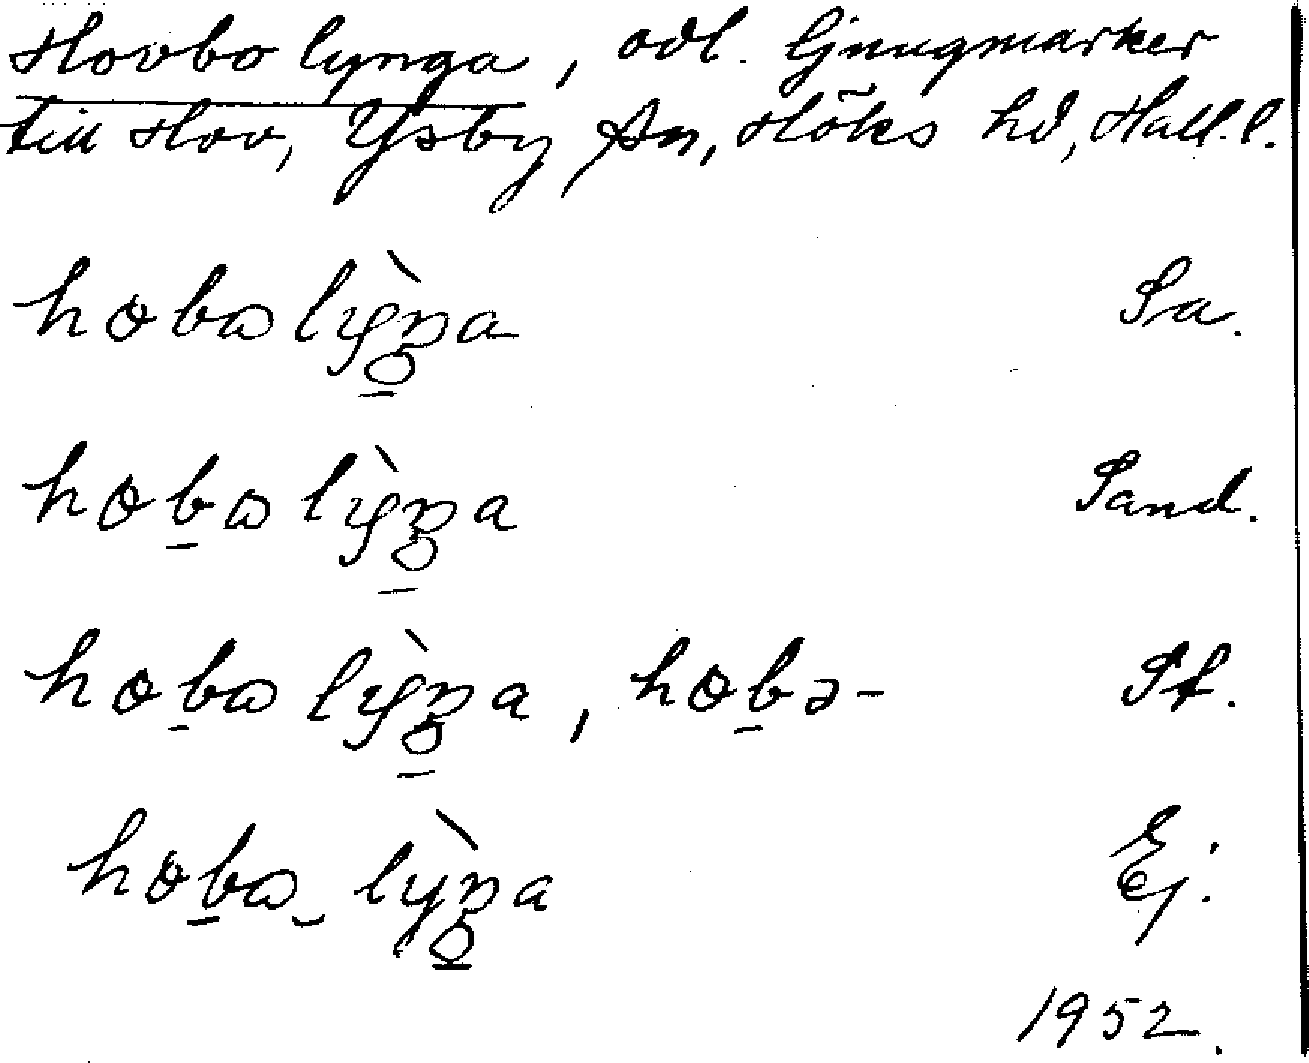 Hovbo lynga, odl. ljungmarker
till Hov, Ysby sn, Höks hd, Hall. l.
hobalỳŋa Sa.
hobalỳŋa Sand.
hobalỳŋa, hobə- St.
hoba lỳŋa Ej.
1952.